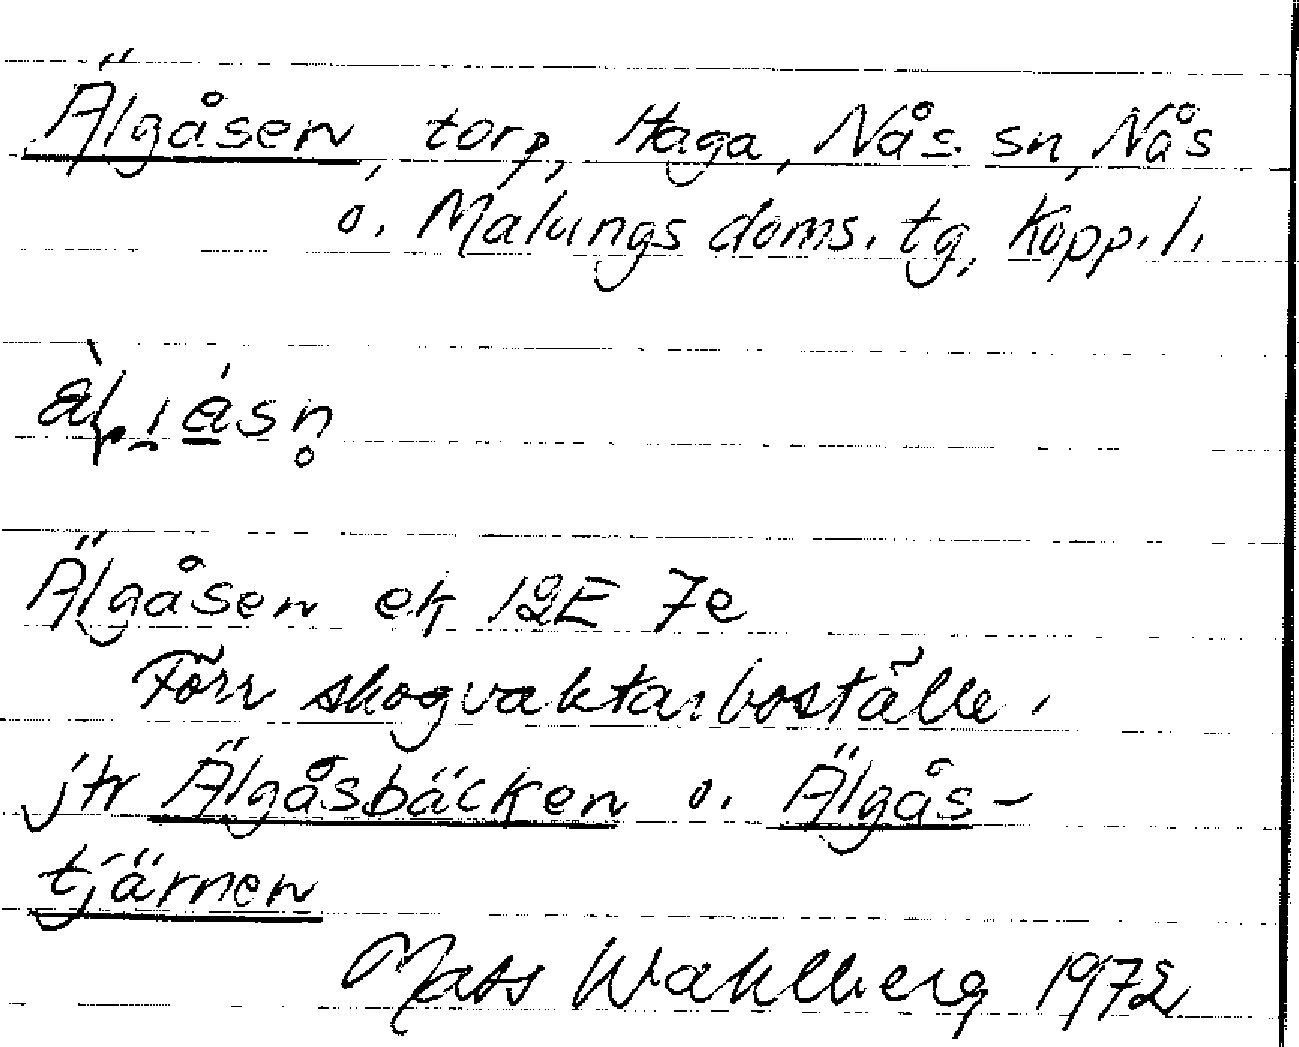 Älgåsen, torp, Haga, Nås sn, Nås
o. Malungs doms. tg, Kopp. l.
Älgåsen ek 12E 7e
Förr skogvaktarboställe.
jfr Älgåsbäcken o. Älgås-
tjärnen
Mats Wahlberg 1972